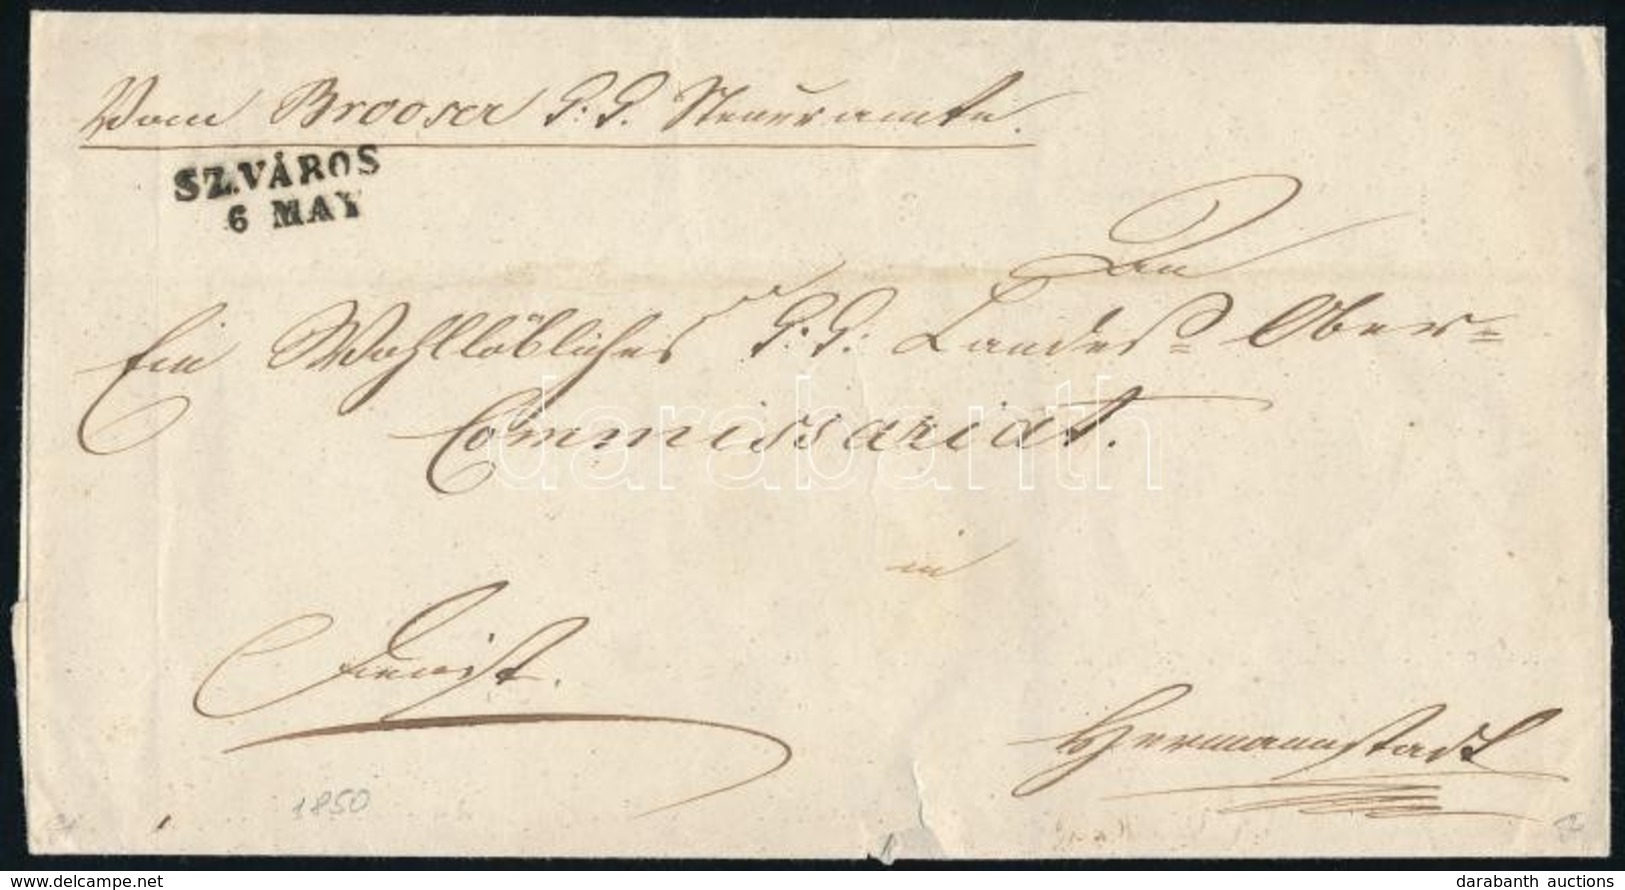 Vom Brooser k: k. Steueramte.
SZ.VÁROS
6 MAY
An
Ein Wohllöbliches k: k: Landes= Ober=
Commissariat.
in
Dienst.
Hermannstadt
1850
darabanth
delcampe.net
darabanth auctions